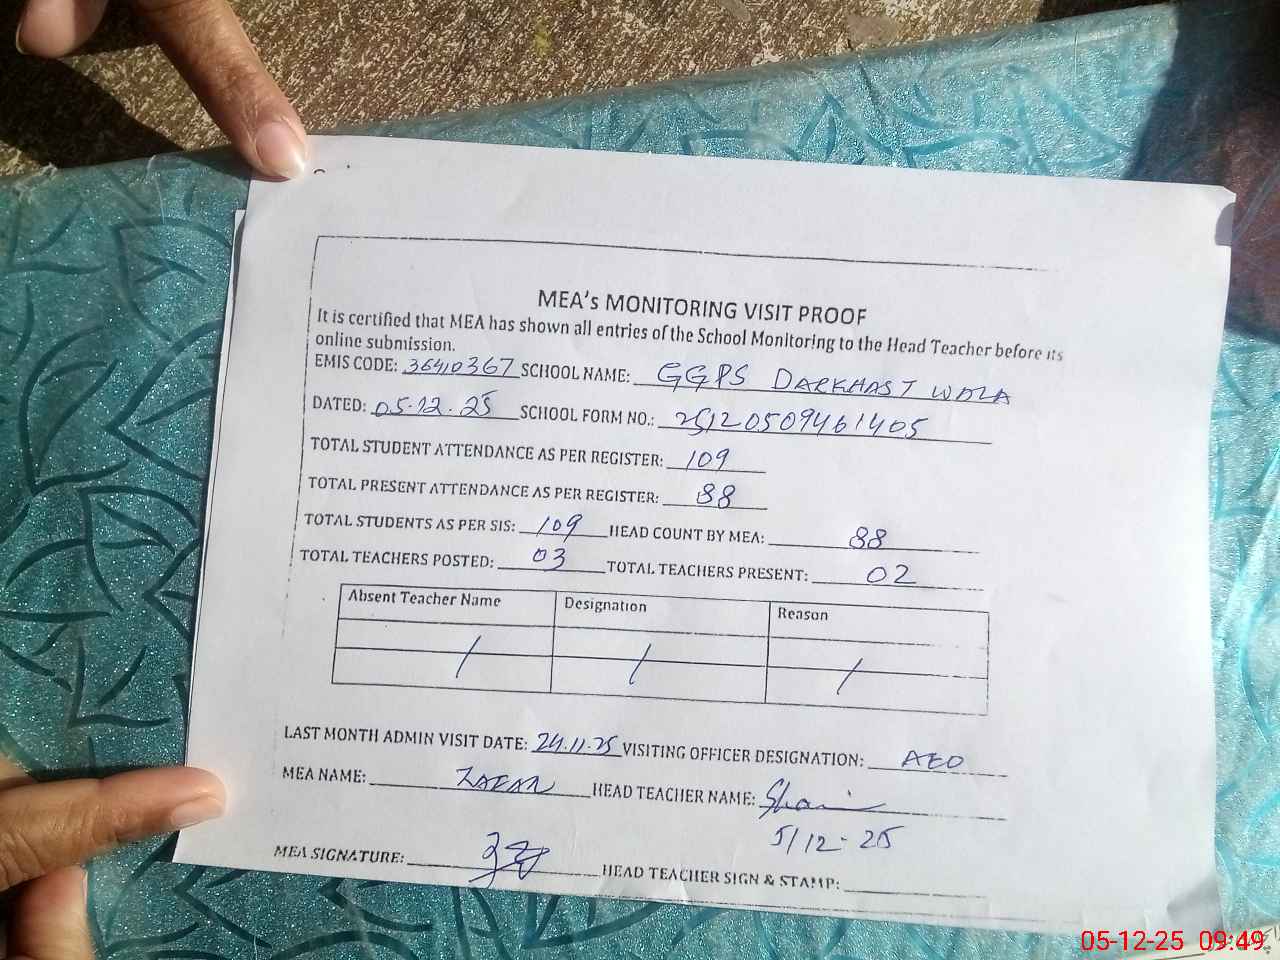 MEA's MONITORING VISIT PROOF
It is certified that MEA has shown all entries of the School Monitoring to the Head Teacher before its
online submission.
EMIS CODE: 36410367 SCHOOL NAME: GGPS DARKHAST WALA
DATED: 05.12.25 SCHOOL FORM NO.: 25120509461405
TOTAL STUDENT ATTENDANCE AS PER REGISTER: 109
TOTAL PRESENT ATTENDANCE AS PER REGISTER: 88
TOTAL STUDENTS AS PER SIS: 109 HEAD COUNT BY MEA: 88
TOTAL TEACHERS POSTED: 03 TOTAL TEACHERS PRESENT: 02
Absent Teacher Name Designation Reason
/ / /
LAST MONTH ADMIN VISIT DATE: 24.11.25 VISITING OFFICER DESIGNATION: AEO
MEA NAME: ZAFAR HEAD TEACHER NAME:
5/12-25
MEA SIGNATURE: HEAD TEACHER SIGN & STAMP:
05-12-25 09:49